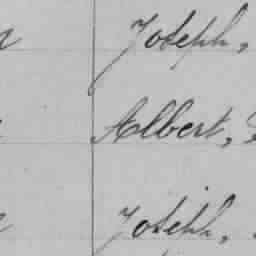 Joseph,
Albert,
Joseph,